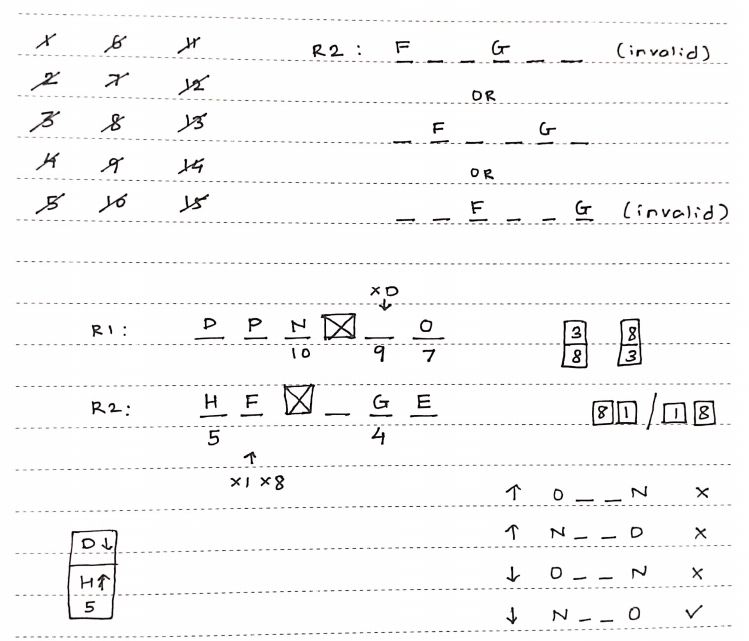 1 6 11 R2: F _ _ G _ _ (invalid)
2 7 12 OR
3 8 13 _ F _ _ G _
4 9 14 OR
5 10 15 _ _ F _ _ G (invalid)
×D
↓
R1: D P N ☒ _ O 3 8
10 9 7 8 3
R2: H F ☒ _ G E 8 1 / 1 8
5 4
↑
×1 ×8
↑ O _ _ N ×
D↓ ↑ N _ _ O ×
H↑ ↓ O _ _ N ×
5 ↓ N _ _ O ✓